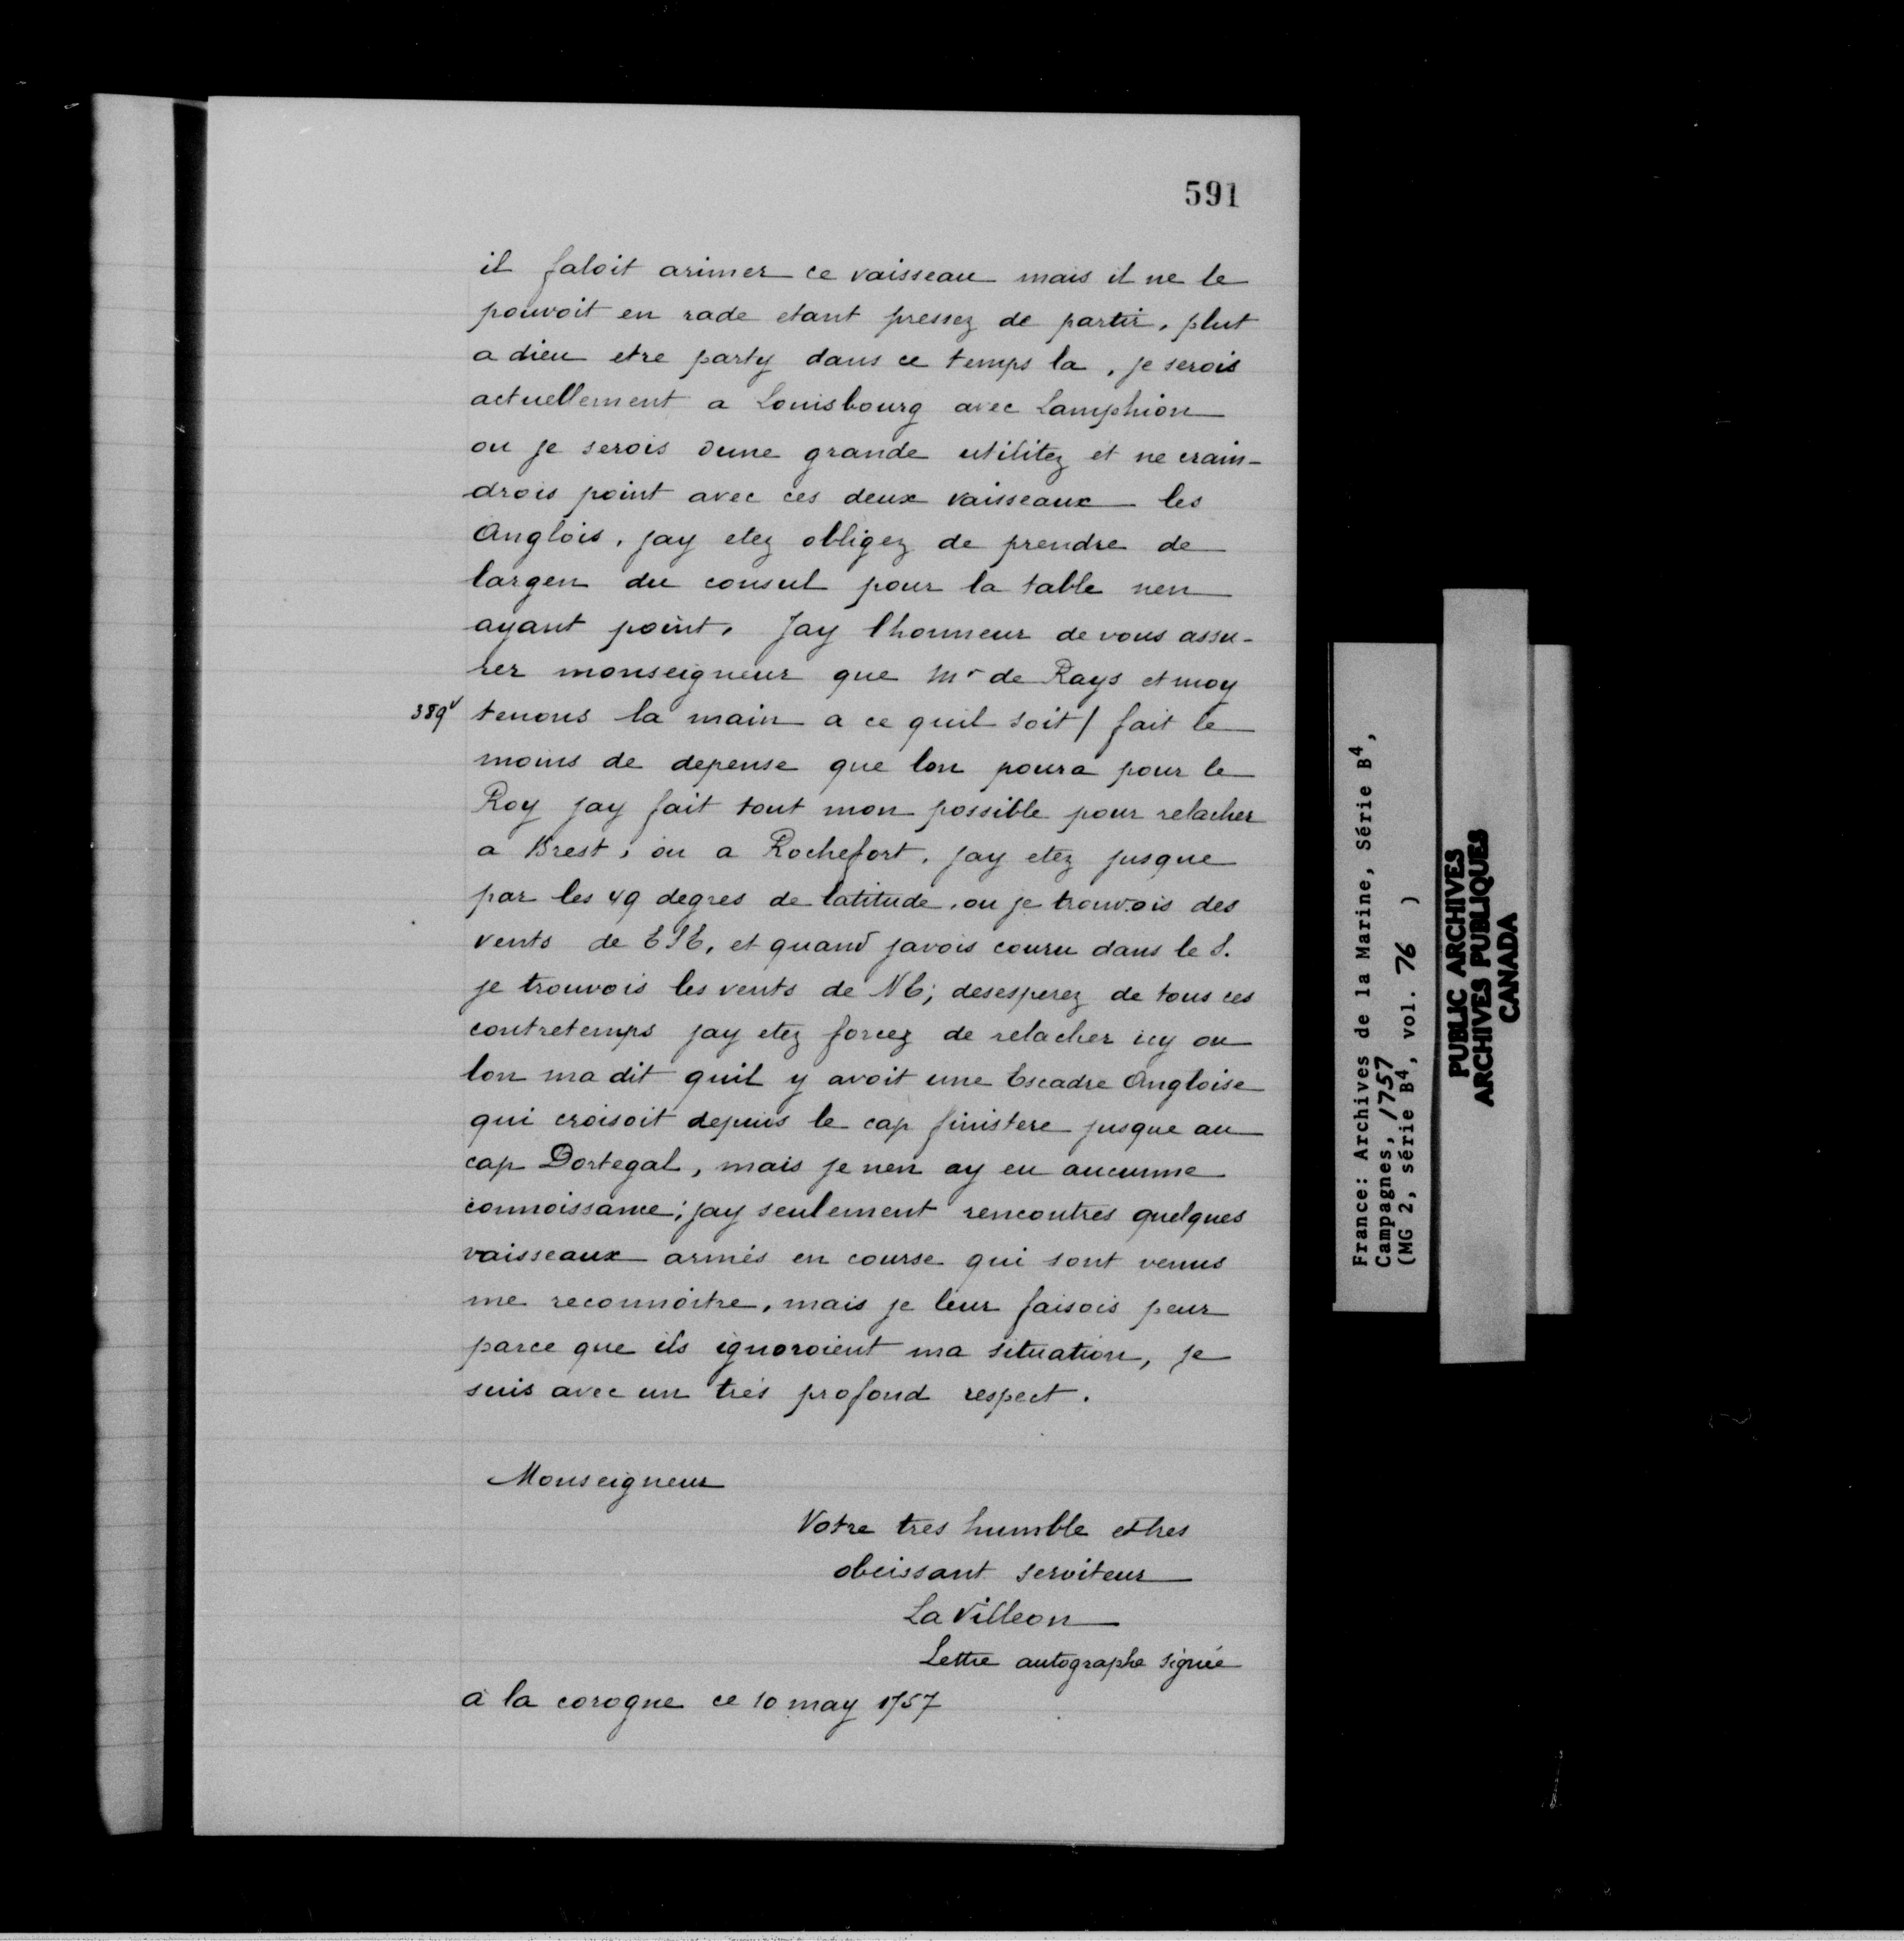 591
il faloit arimer ce vaisseau mais il ne le
pouvoit en rade etant pressez de partir, plut
a dieu etre party dans ce temps la, je serois
actuellement a Louisbourg avec Lamphion
ou je serois dune grande utilitez et ne crain-
drois point avec ces deux vaisseaux les
Anglois, jay etez obligez de prendre de
largen du consul pour la table nen
ayant point, Jay lhonneur de vous assu-
rer monseigneur que Mr de Rays et moy
389v tenons la main a ce quil soit / fait le
moins de depense que lon poura pour le
Roy jay fait tout mon possible pour relacher
a Brest, ou a Rochefort, jay etez jusque
par les 49 degres de latitude, ou je trouvois des
vents de ESE, et quand javois couru dans le S.
je trouvois les vents de NE; desesperez de tous ces
contretemps jay etez forcez de relacher icy ou
lon ma dit quil y avoit une Escadre Angloise
qui croisoit depuis le cap finistere jusque au
cap Dortegal, mais je nen ay eu aucunne
connoissance; jay seulement rencontres quelques
vaisseaux armés en course qui sont venus
me reconnoitre, mais je leur faisois peur
parce que ils ignoroient ma situation, je
suis avec un trés profond respect.
Monseigneur
Votre tres humble et tres
obeissant serviteur
La Villeon
Lettre autographe signée
à la corogne ce 10 may 1757
France: Archives de la Marine, Série B4,
Campagnes, 1757
(MG 2, série B4, vol. 76 )
PUBLIC ARCHIVES
ARCHIVES PUBLIQUES
CANADA